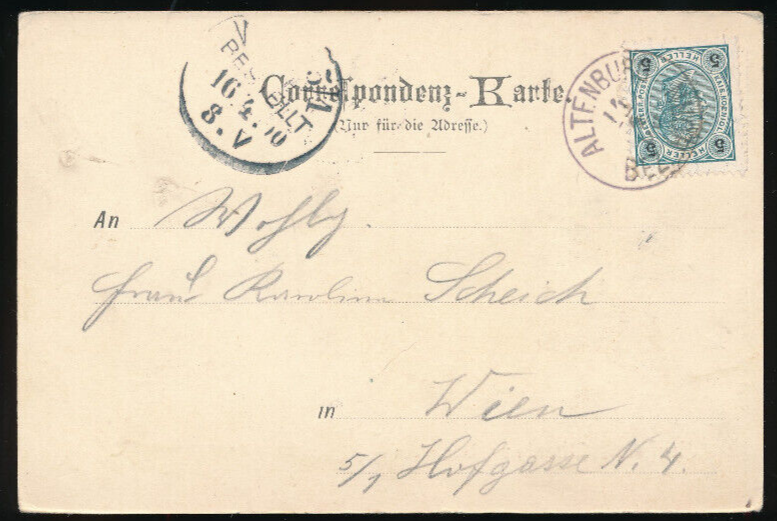 Correspondenz-Karte.
(Nur für die Adresse.)
16.4.00
8.V
ALTENBURG
5 HELLER 5
5 HELLER 5
An Wohlg.
Frau Karolina Scheich
in Wien
5/1 Hofgasse N. 4.